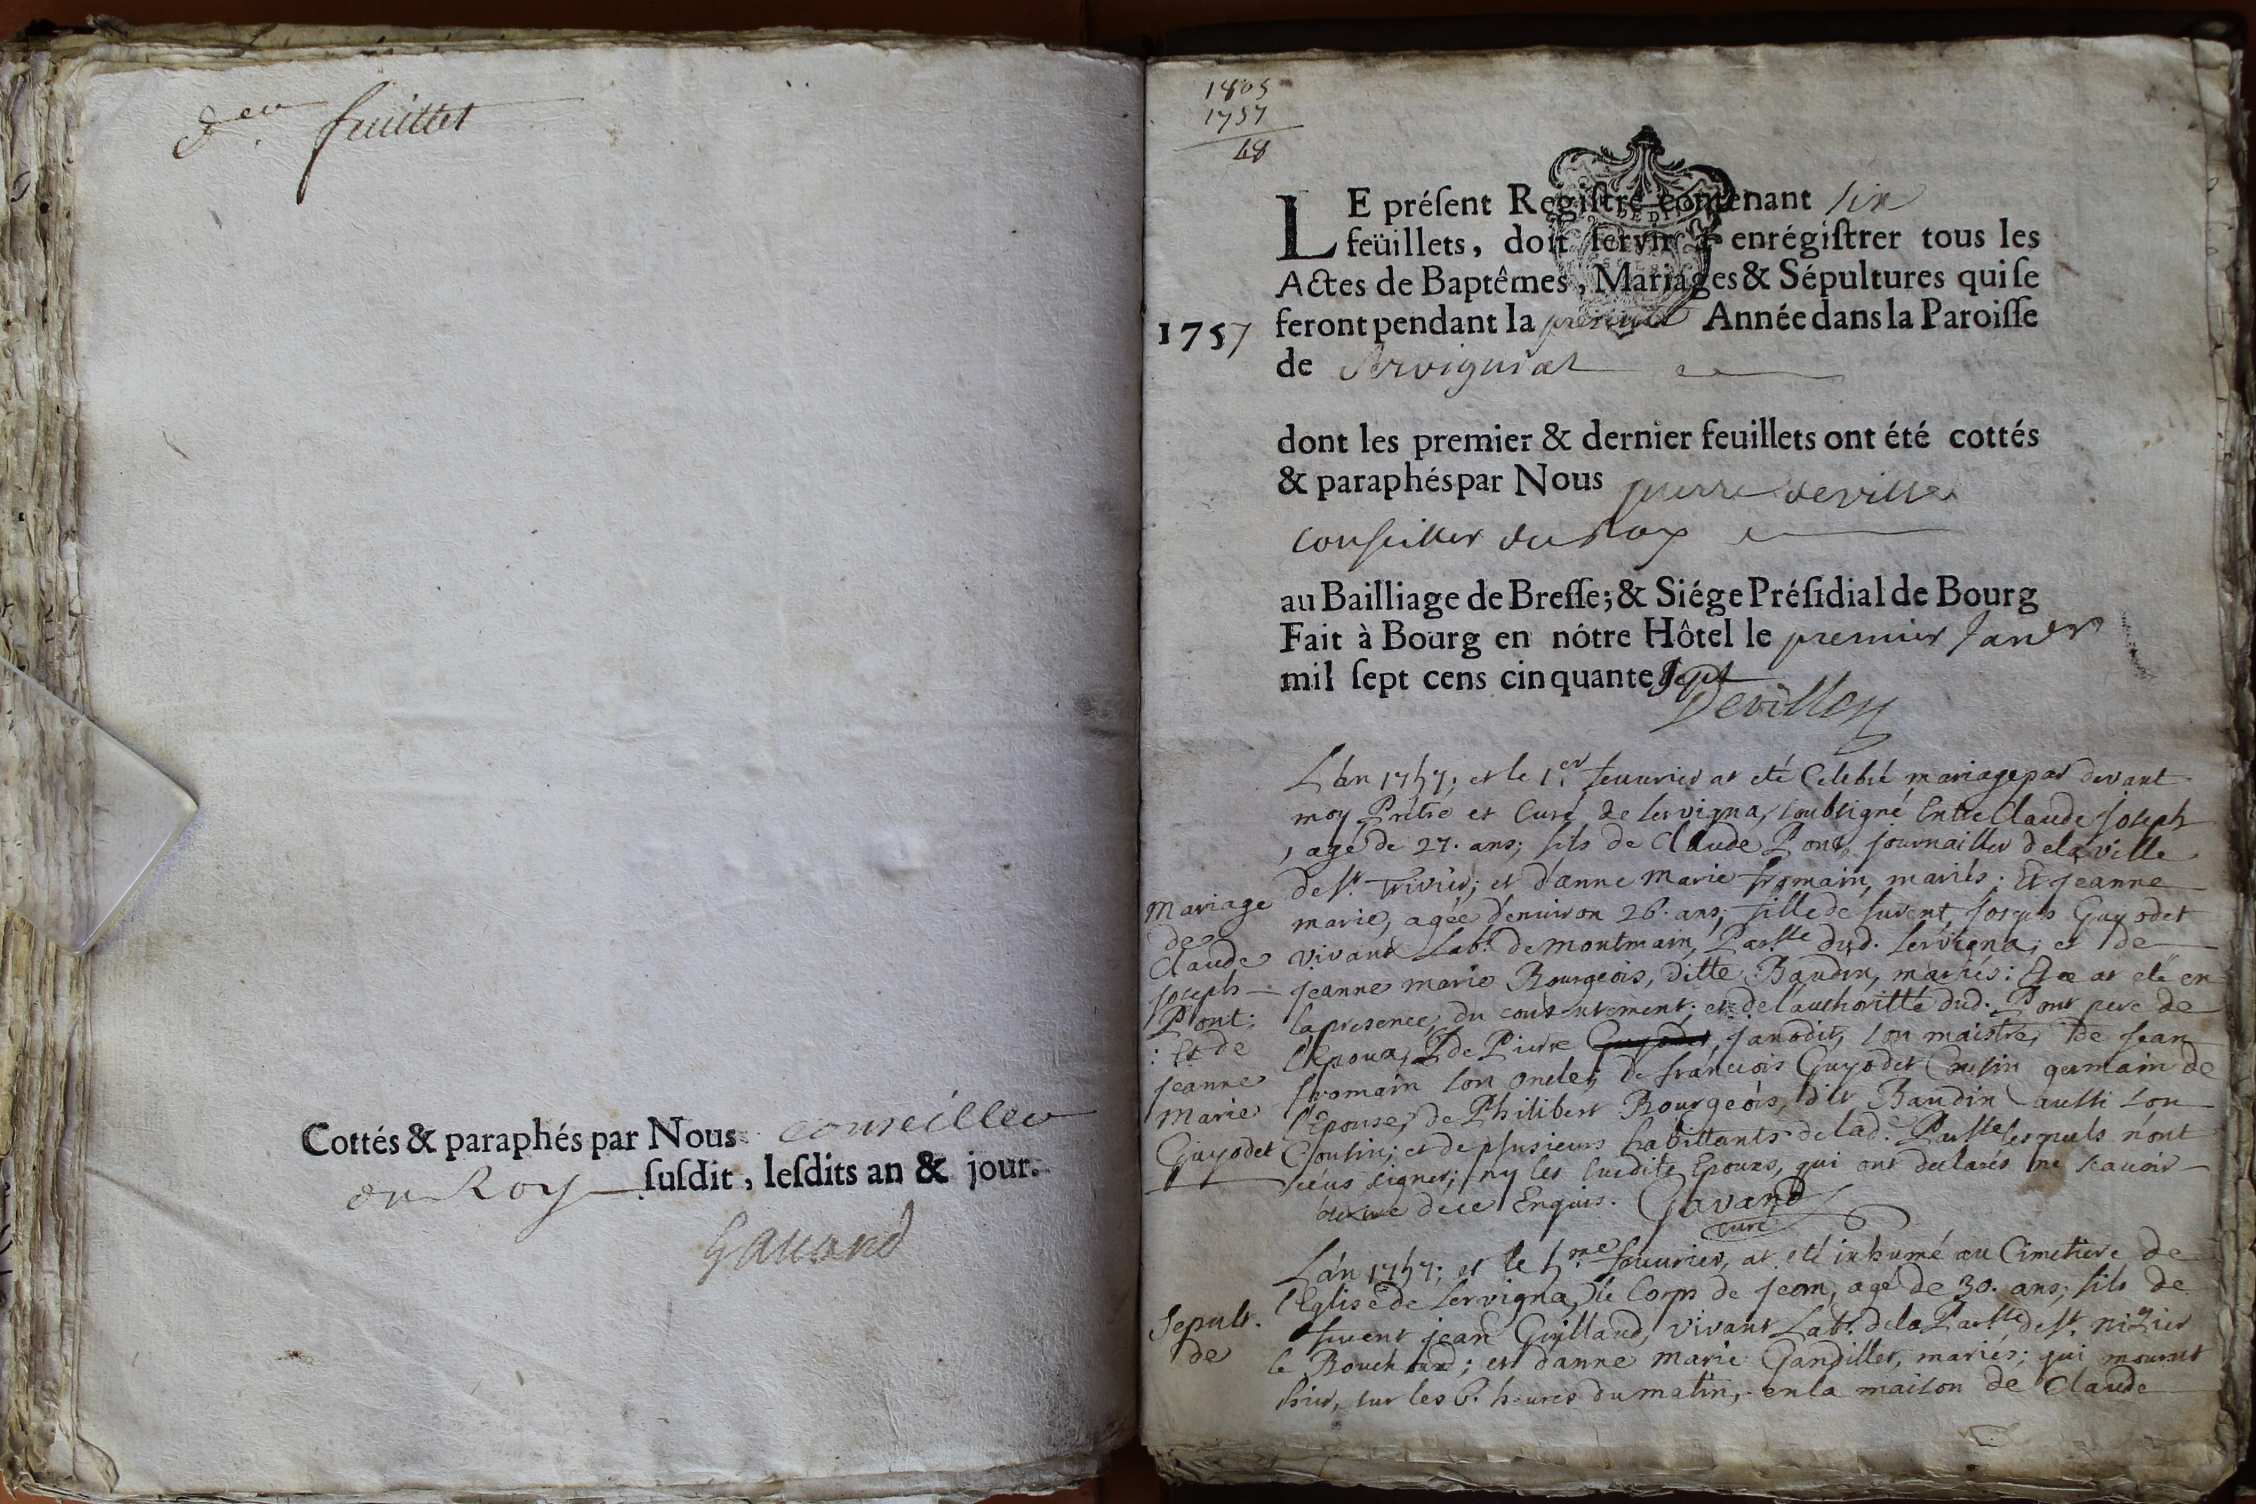 feuillet
Cottés & paraphés par Nous conseiller
du Roy susdit, lesdits an & jour.
Gavand
1805
1757
48
LE préſent Regiſtre contenant six
feüillets, doit ſervir à enrégiſtrer tous les
Actes de Baptêmes, Mariages & Sépultures qui ſe
1757 feront pendant la présente Année dans la Paroiſſe
de Servignat
dont les premier & dernier feuillets ont été cottés
& paraphés par Nous pierre deville
conseiller du Roy
au Bailliage de Breſſe; & Siége Préſidial de Bourg
Fait à Bourg en nôtre Hôtel le premier Janvr
mil ſept cens cinquante sept
L'an 1757; et le 1.er feuurier at eté Celebré mariage par devant
moy Prêtre et Curé de Servigna, soubsigné Entre Claude Joseph
, agé de 27. ans; fils de Claude Pont, journaillier de la ville
de St. Trivier; et d'anne Marie fromain, mariés. Et jeanne
marie, agée d'environ 26. ans; fille de fuvent, Joseph Guyodet
vivant Lab.r de montmain, Par.sse dud. Servigna; et de
jeanne marie Bourgeois, ditte Baudin, mariés: at eté en
la presence, du consentement; et de l'authoritté dud. Pont pere de
l'Epoux, de Pierre Guyodet, janodit, son maistre, de Jean
fromain son oncle; de francois Guyodet Cousin germain de
l'Epouse, de Philibert Bourgeois, dit Baudin aussi son
Cousin; et de plusieurs habittants de lad. Par.sse lesquels n'ont
sceüs signer; ny les susdits Epoux, qui ont declarés ne scavoir
de ce Enquis. Gavand
curé
Mariage
de
Claude
Joseph
Pont;
: Et de
jeanne
Marie
Guyodet
L'an 1757; et le 5.me feuurier, at eté inhumé au Cimetiere de
l'Eglise de Servigna, le Corps de jean, agé de 30. ans; fils de
fuvent jean Guillaud, vivant Lab.r de la Par.sse de St. nizier
le Bouchoux; et d'anne Marie Gandillet, mariés; qui mourut
hier, sur les 6. heures du matin, en la maison de Claude
Sepult.
de